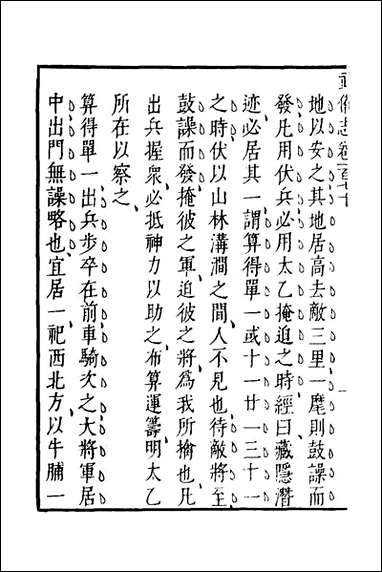 武備志卷一百七十
地以安之其地居高去敵三里一麾則鼓譟而
發凡用伏兵必用太乙掩迫之時經曰藏隱潛
迹必居其一謂算得單一或十一廿一三十一
之時伏以山林溝澗之間人不見也待敵將至
鼓譟而發掩彼之軍迫彼之將爲我所擒也凡
出兵握衆必抵神力以助之布算運籌明太乙
所在以察之
算得單一出兵步卒在前車騎次之大將軍居
中出門無譟略也宜居一祀西北方以牛脯一